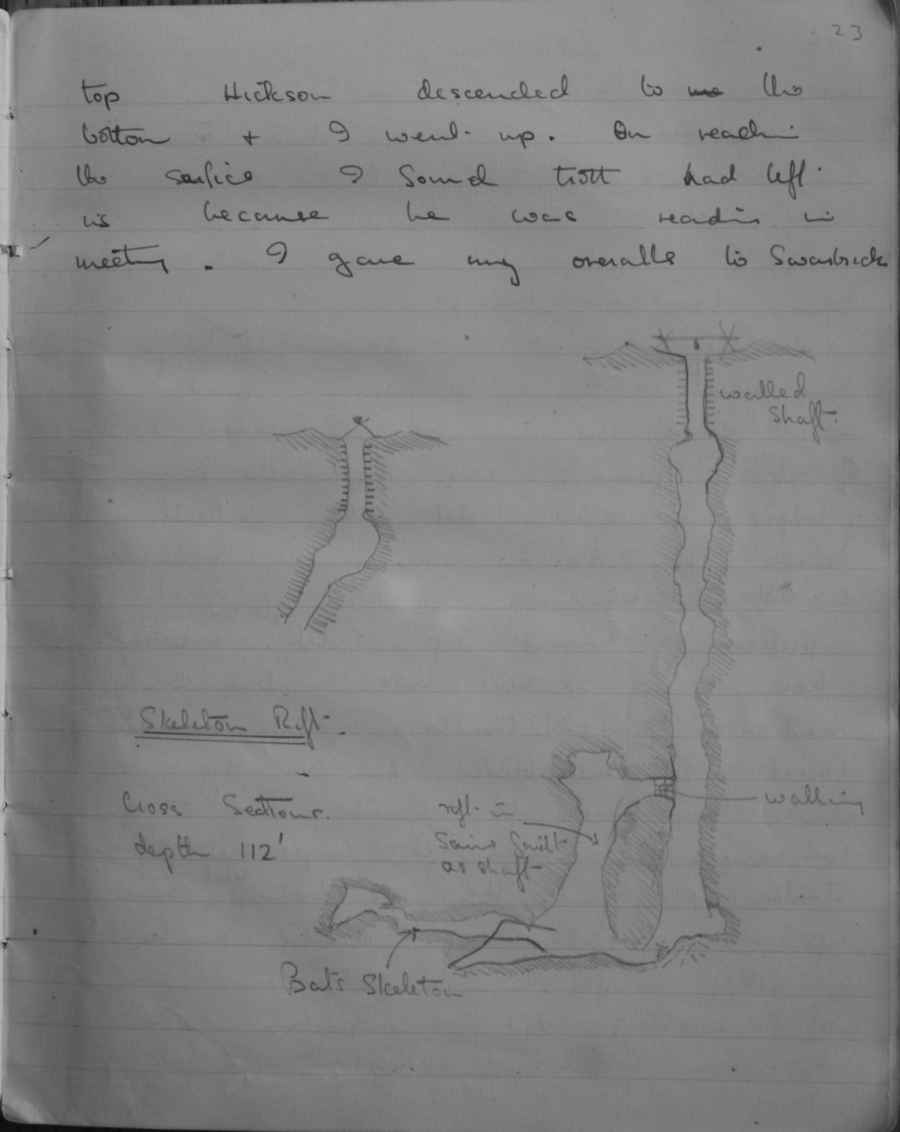 23
top Hickson descended to me the
bottom + I went up. On reachin
the surfice I found trott had left
us because he was readin in
meeting. I gave my overalls to Swarbrick
walled
shaft.
Skeleton Rift.
Cross Sections.
depth 112'
rift in
same fault
as shaft
walling
Bats Skeleton